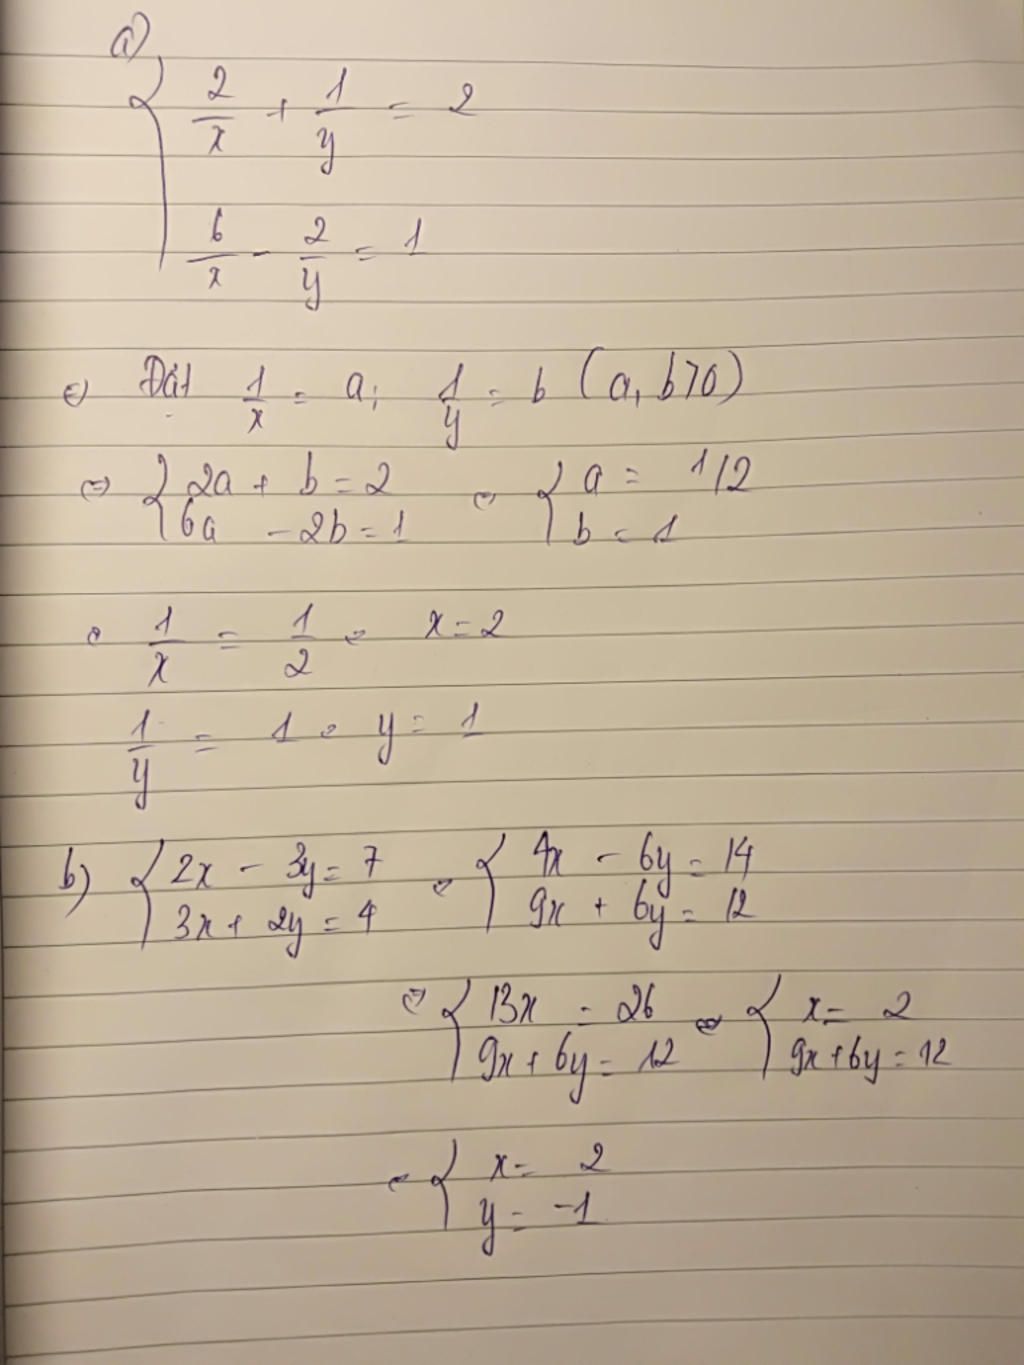 a)
{ 2/x + 1/y = 2
6/x - 2/y = 1
⇔ Đặt 1/x = a; 1/y = b (a, b>0)
⇔ { 2a + b = 2 ⇔ { a = 1/2
6a - 2b = 1 b = 1
⇔ 1/x = 1/2 ⇔ x = 2
1/y = 1 ⇔ y = 1
b) { 2x - 3y = 7 ⇔ { 4x - 6y = 14
3x + 2y = 4 9x + 6y = 12
⇔ { 13x = 26 ⇔ { x = 2
9x + 6y = 12 9x + 6y = 12
⇔ { x = 2
y = -1